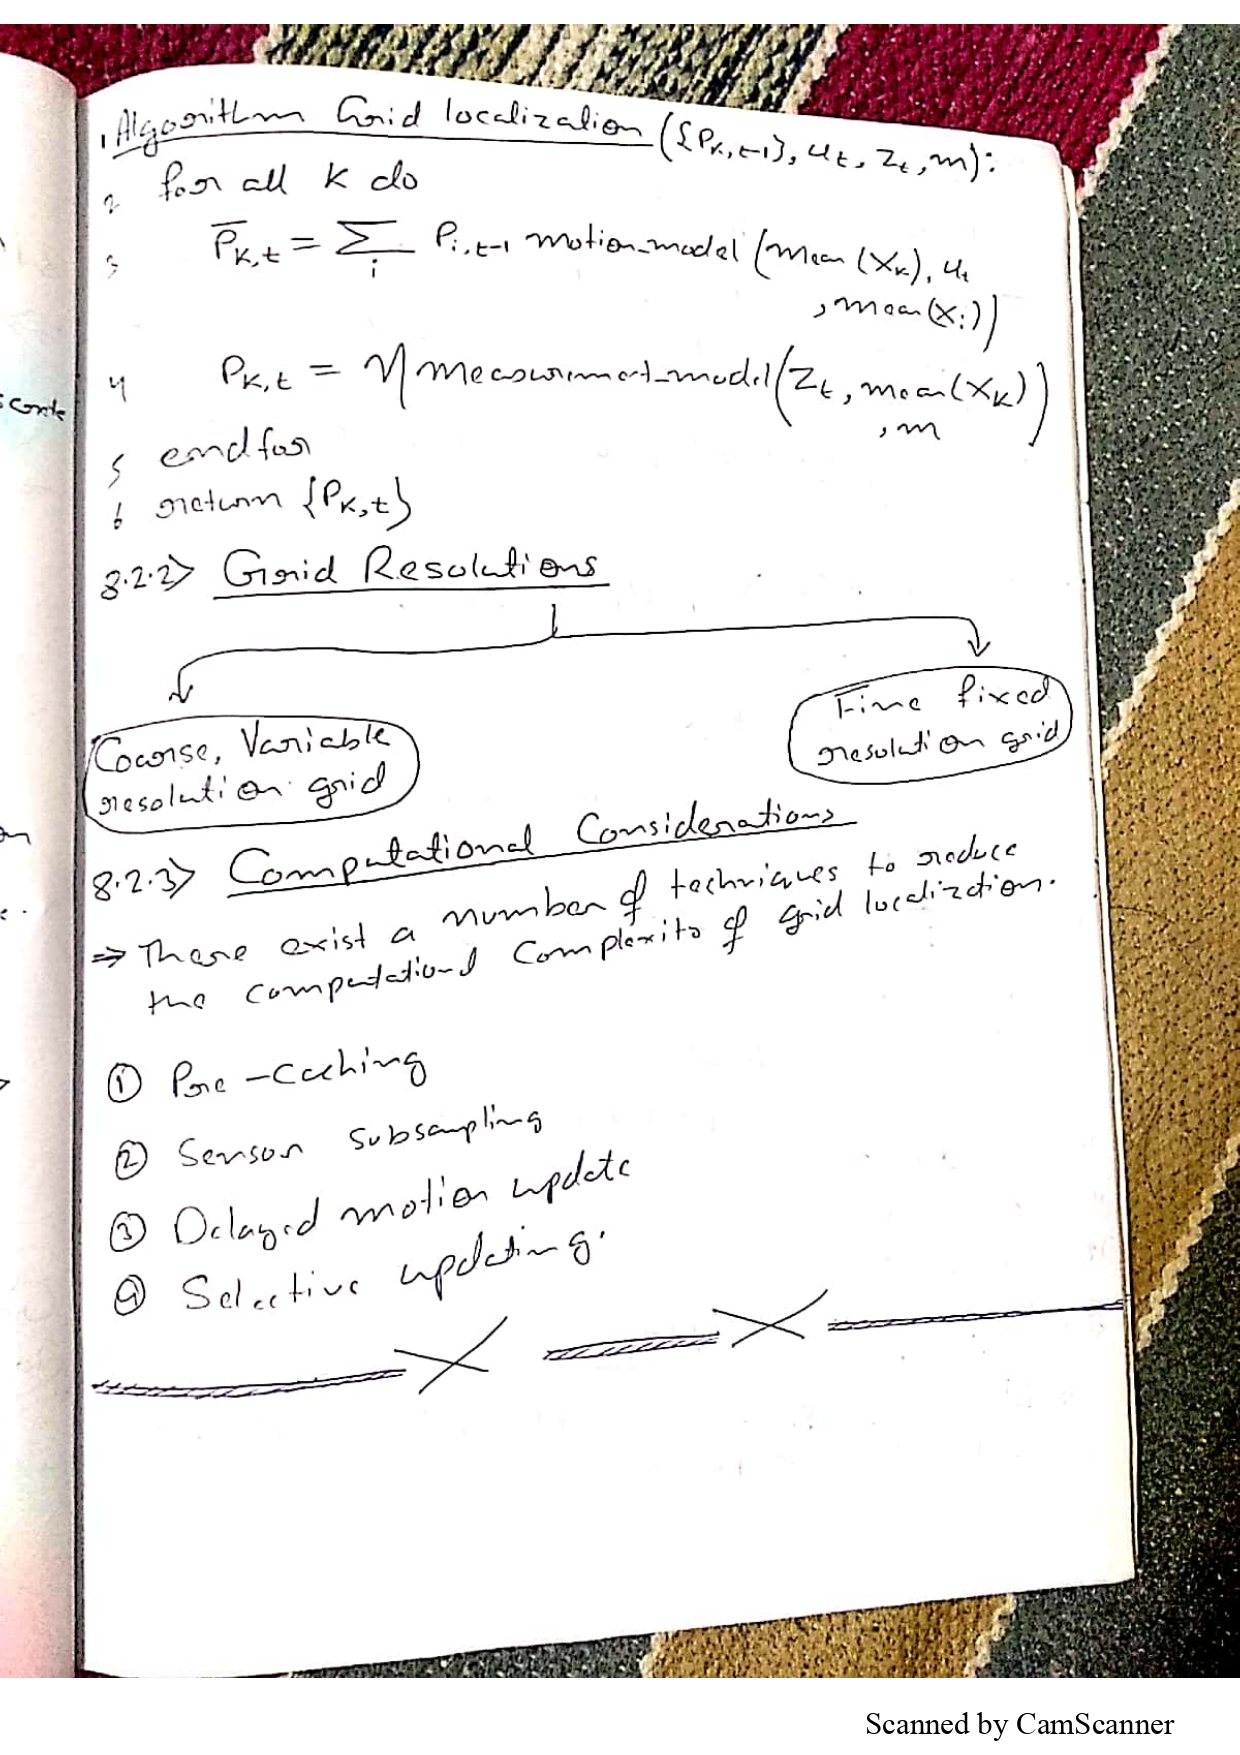 1 Algorithm Grid localization ({Pk,t-1}, ut, zt, m):
2 for all k do
3 P̄k,t = Σi Pi,t-1 motion_model (mean (Xk), ut
, mean(Xi))
4 Pk,t = η measurement_model (Zt, mean(Xk)
, m)
5 endfor
6 return {Pk,t}
8.2.2> Grid Resolutions
Coarse, Variable
resolution grid
Fine fixed
resolution grid
8.2.3> Computational Considerations
⇒ There exist a number of techniques to reduce
the computational Complexity of grid localization.
① Pre-Caching
② Sensor subsampling
③ Delayed motion update
④ Selective updating.
Scanned by CamScanner